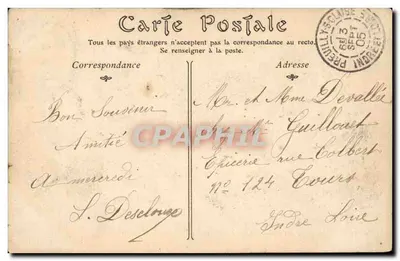 Carte Postale
Tous les pays étrangers n'acceptent pas la correspondance au recto.
Se renseigner à la poste.
Correspondance
Adresse
Bon Souvenir
Amitié
A mercredi
Mr. et Mme Devallée
Guillouet
Epicerie rue Colbert
No 124 Tours
Indre Loire
PREUILLY-S-CLAISE
13
SEPT
05
CPAPHIL